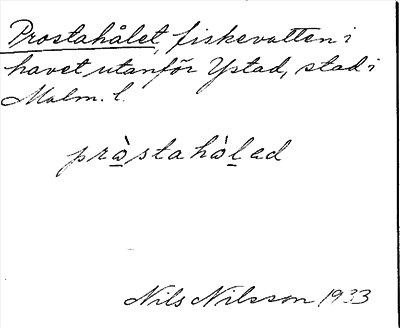 Prostahålet, fiskevatten i
havet utanför Ystad, stad i
Malm. l.
pròstahòled
Nils Nilsson 1933